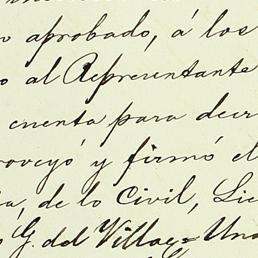 o aprobado, á los
o al Representante
cuenta para decr
roveyó y firmó el
a, de lo Civil, Lic
G. del Villar = Una